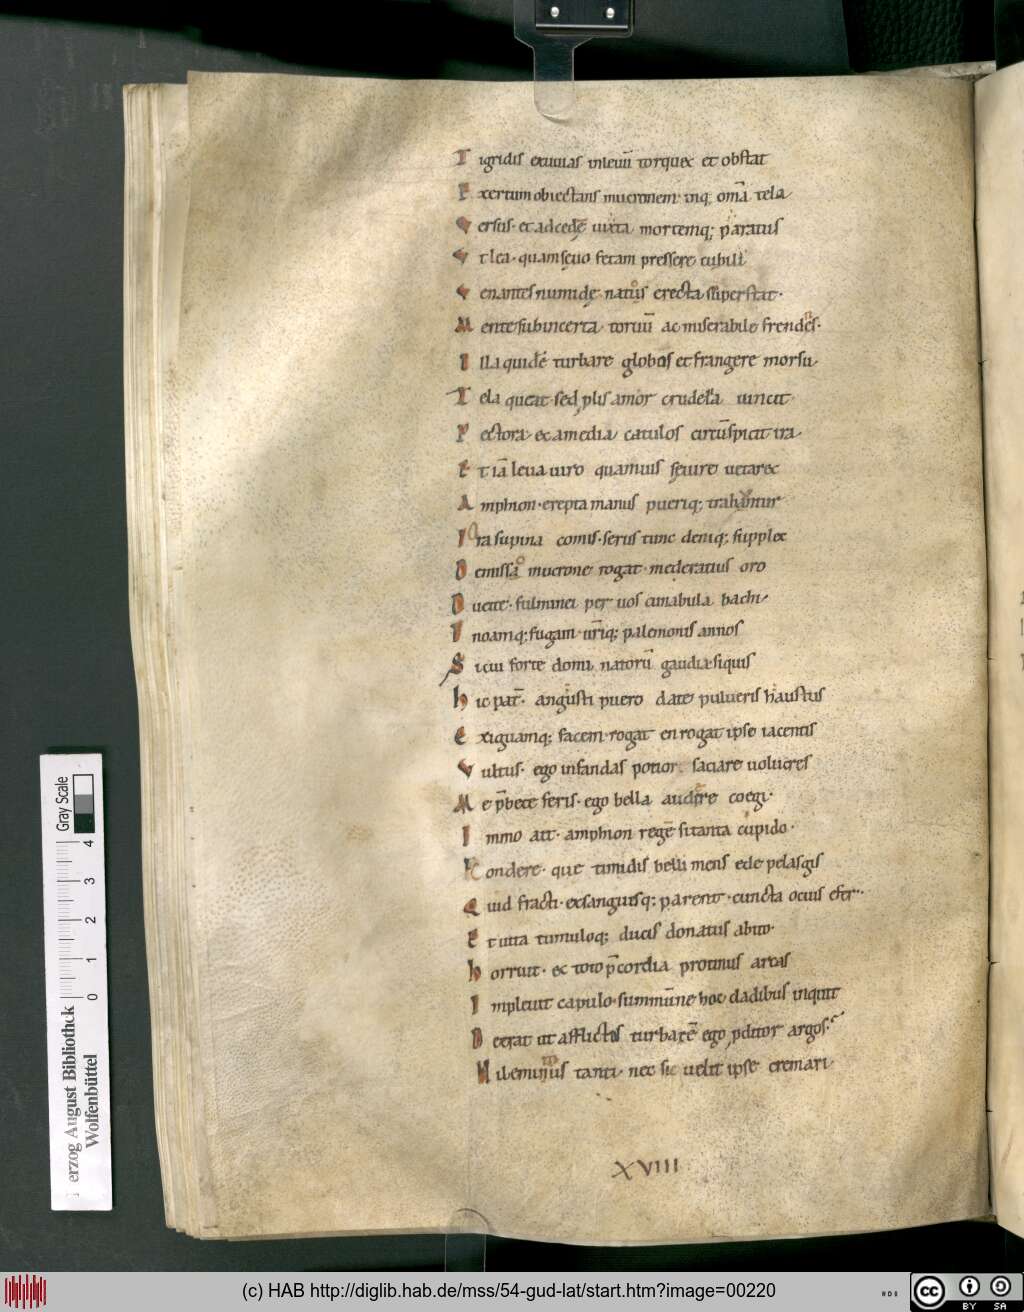 Tigridis exuuias inleuū torquex et obstat
Exertum obiectans mucronem inq; om̄a tela
Versus. et adcedē iuxta mortemq; paratus
Vt lea. quam sęuo fetam pressere cubili
Venantes numidę natos erecta superstat.
Mente sub incerta toruū ac miserabile frendens.
Illa quidē turbare globos et frangere morsu
Tela queat. sed plis amor crudelia uincit
Pectora. ex a media catulos circūspicit ira
Et iā leua uiro quamuis seuire uetarec
Amphion. erepta manus pueriq; trahuntur
Ora supina comis. serus tunc deniq; supplex
Demisso mucrone rogat. moderatius oro
Ducite. fulminei per uos cunabula bachi
Inoamq; fugam. ur̄iq; palemonis annos
Si cui forte domi natorū gaudia siquis
hic pat̄. angusti puero date pulueris haustus
Exiguamq; facem. rogat en rogat ipse iacentis
Vultus. ego infandas potior. saciare uolucres
Me p̄bete feris. ego bella audere coegi.
Immo ait. amphion regē si tanta cupido.
Condere. que timidis belli mens ede pelasgis
Quid fracti. exsanguisq; parent. cuncta ocius efer..
Et uita tumuloq; ducis donatus abito.
horruit. ex toto p̄cordia protinus arcas
Impleuit capulo. summūne hoc cladibus inquit
Deerat ut afflictos turbarē ego pditor argos.
Nil emimus tanti. nec sic uelit ipse cremari.
XVIII
Gray Scale
4
3
2
1
0
erzog August Bibliothek
Wolfenbüttel
(c) HAB http://diglib.hab.de/mss/54-gud-lat/start.htm?image=00220
cc
BY SA